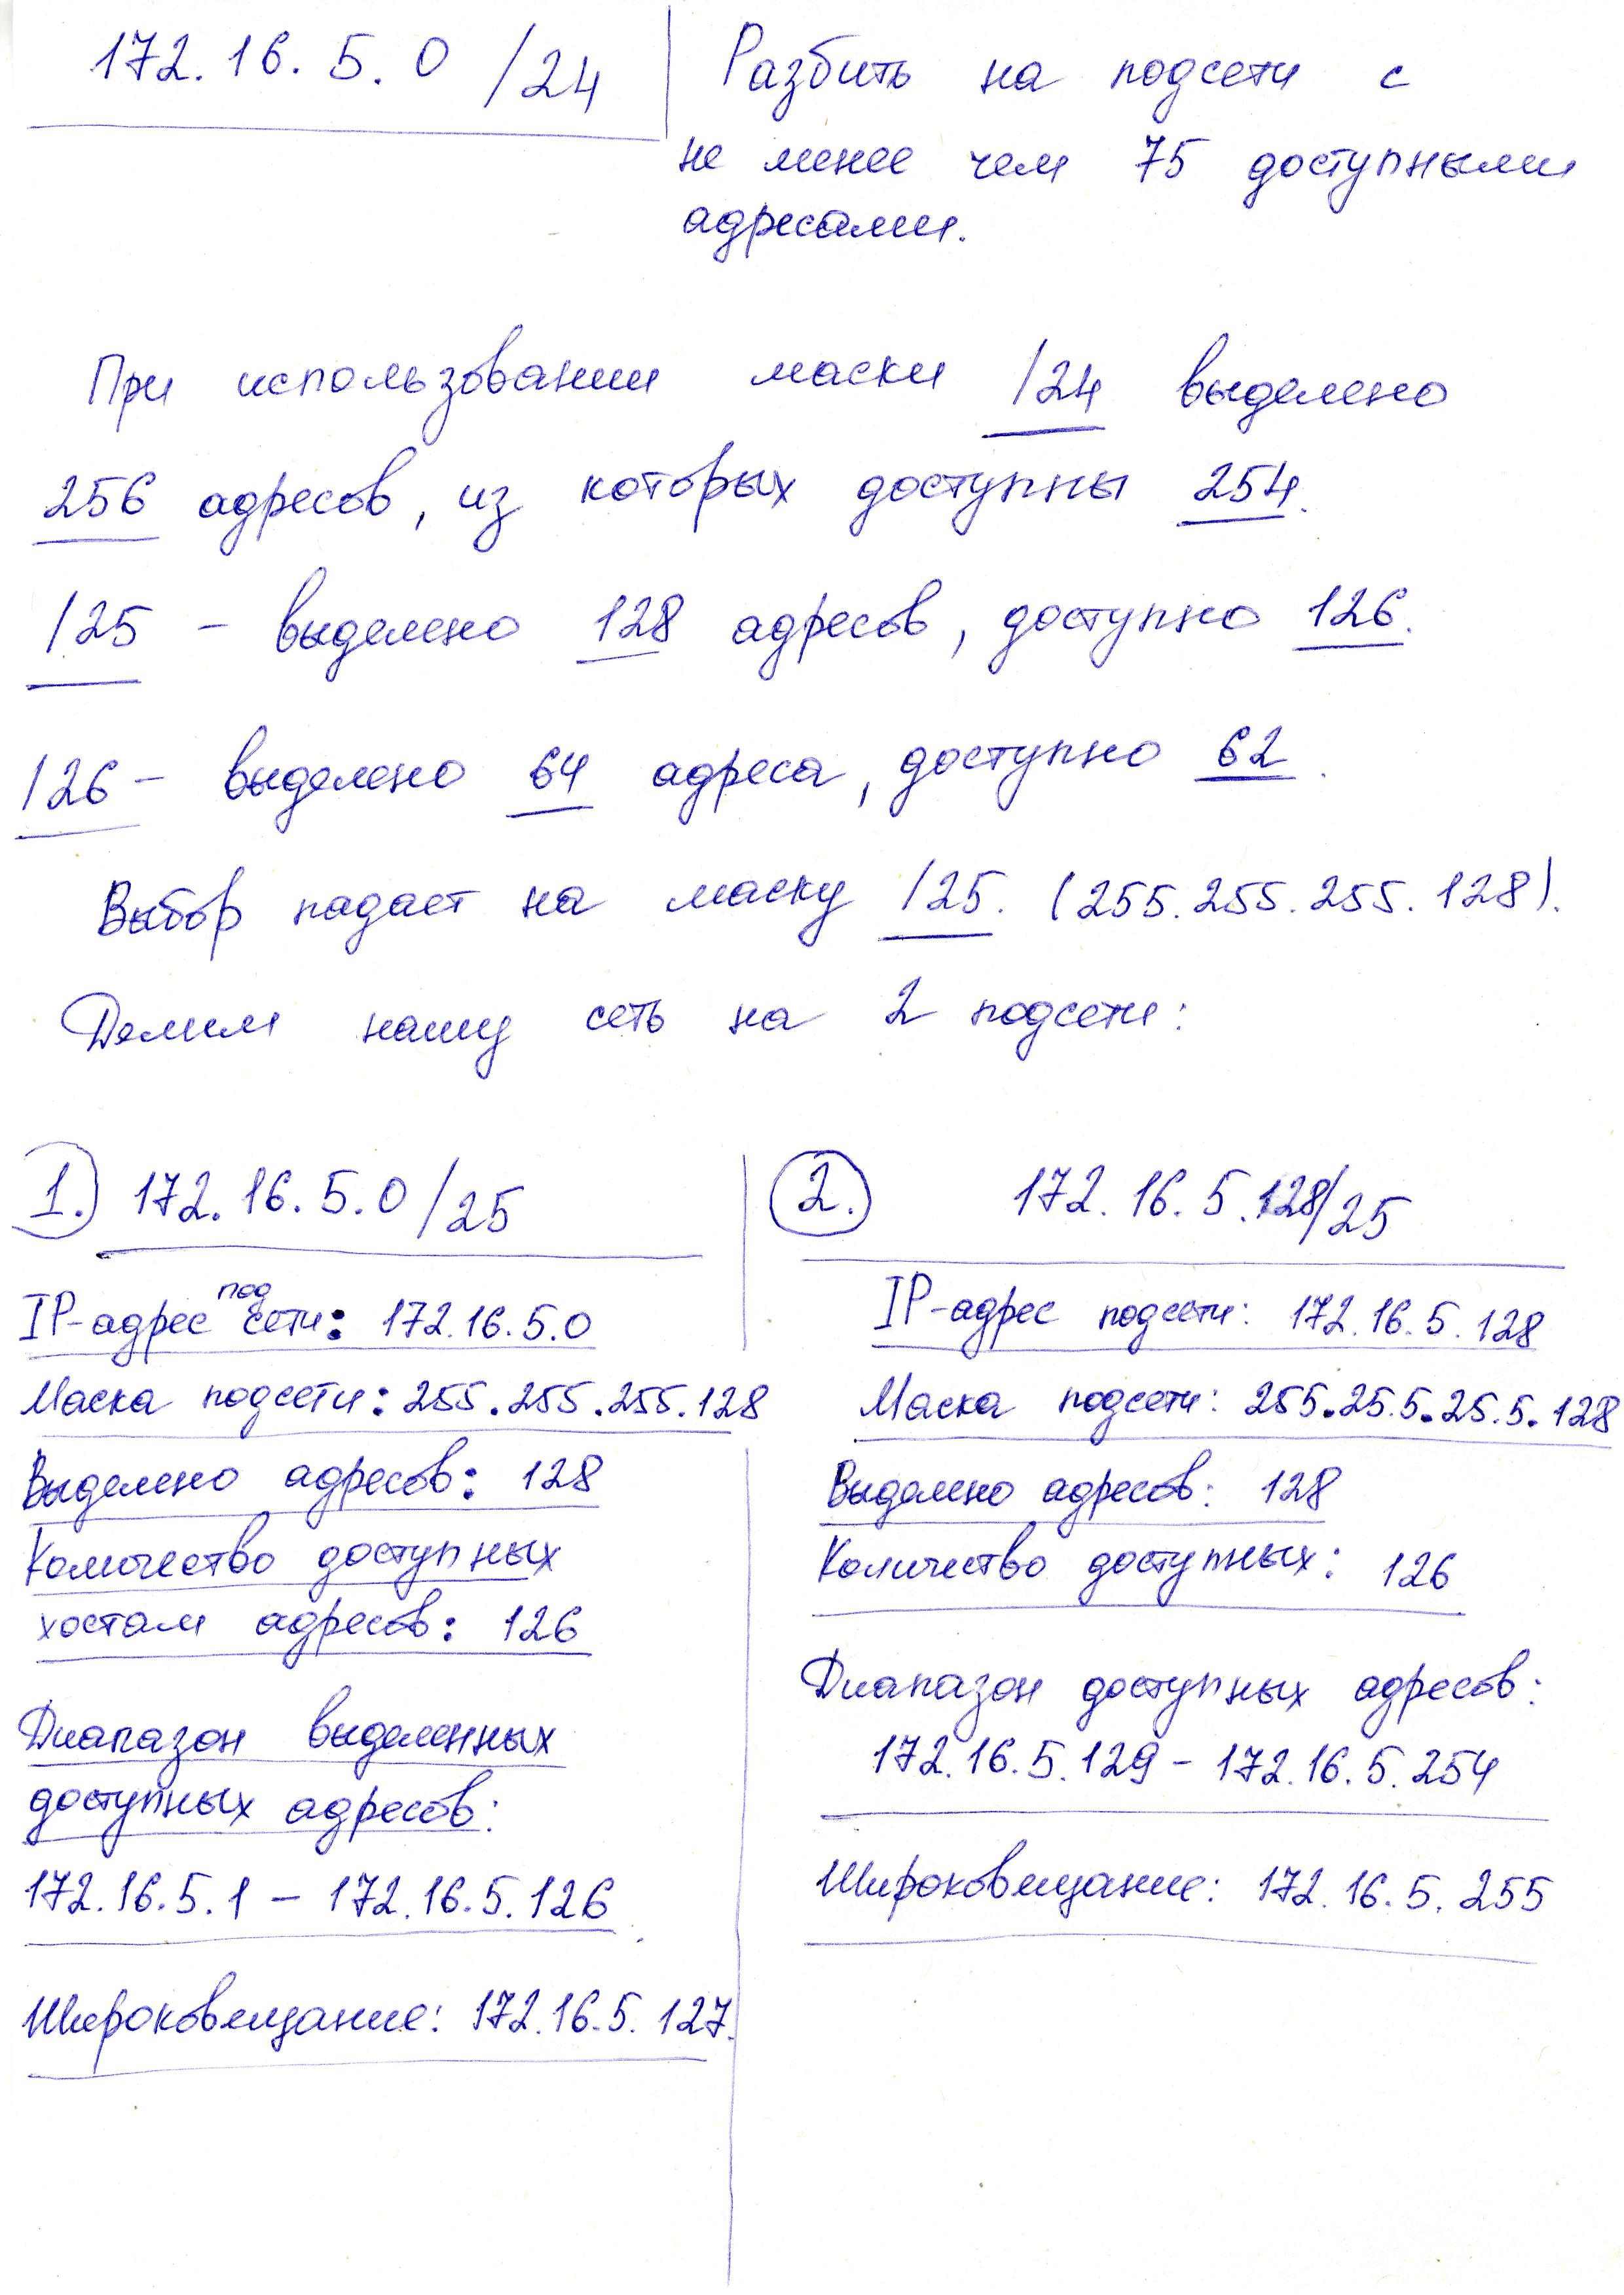 172.16.5.0 /24
Разбить на подсети с
не менее чем 75 доступными
адресами.
При использовании маски /24 выделено
256 адресов, из которых доступны 254.
/25 - выделено 128 адресов, доступно 126.
/26 - выделено 64 адреса, доступно 62.
Выбор падает на маску /25. (255.255.255.128).
Делим нашу сеть на 2 подсети:
1. 172.16.5.0/25
IP-адрес подсети: 172.16.5.0
Маска подсети: 255.255.255.128
Выделено адресов: 128
Количество доступных
хостам адресов: 126
Диапазон выделенных
доступных адресов:
172.16.5.1 - 172.16.5.126
Широковещание: 172.16.5.127.
2. 172.16.5.128/25
IP-адрес подсети: 172.16.5.128
Маска подсети: 255.25.5.25.5.128
Выделено адресов: 128
Количество доступных: 126
Диапазон доступных адресов:
172.16.5.129 - 172.16.5.254
Широковещание: 172.16.5.255